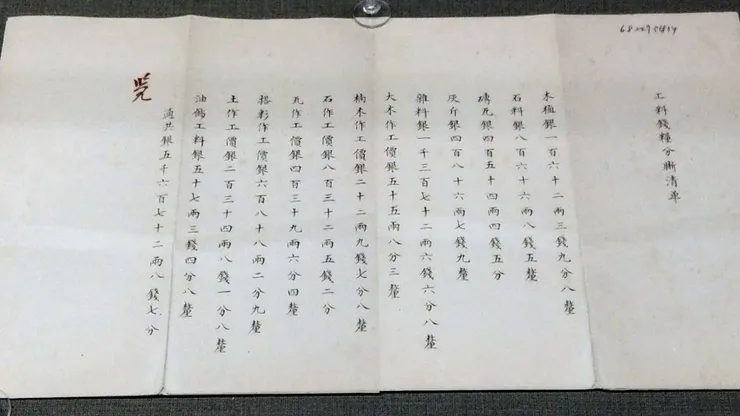 68 2297 54814
工料錢糧分晰清單
木植銀一百六十二兩三錢九分八釐
石料銀八百六十六兩八錢五釐
磚瓦銀四百五十四兩四錢五分
灰斤銀四百八十六兩七錢九釐
雜料銀一千三百七十二兩六錢六分八釐
大木作工價銀五十五兩八分三釐
楠木作工價銀二十二兩九錢七分八釐
石作工價銀八百三十二兩五錢二分
瓦作工價銀四百三十九兩六分四釐
搭彩作工價銀六百八十八兩二分九釐
土作工價銀二百三十四兩八錢一分八釐
油飾工料銀五十七兩三錢四分八釐
通共銀五千六百七十二兩八錢七分
覽